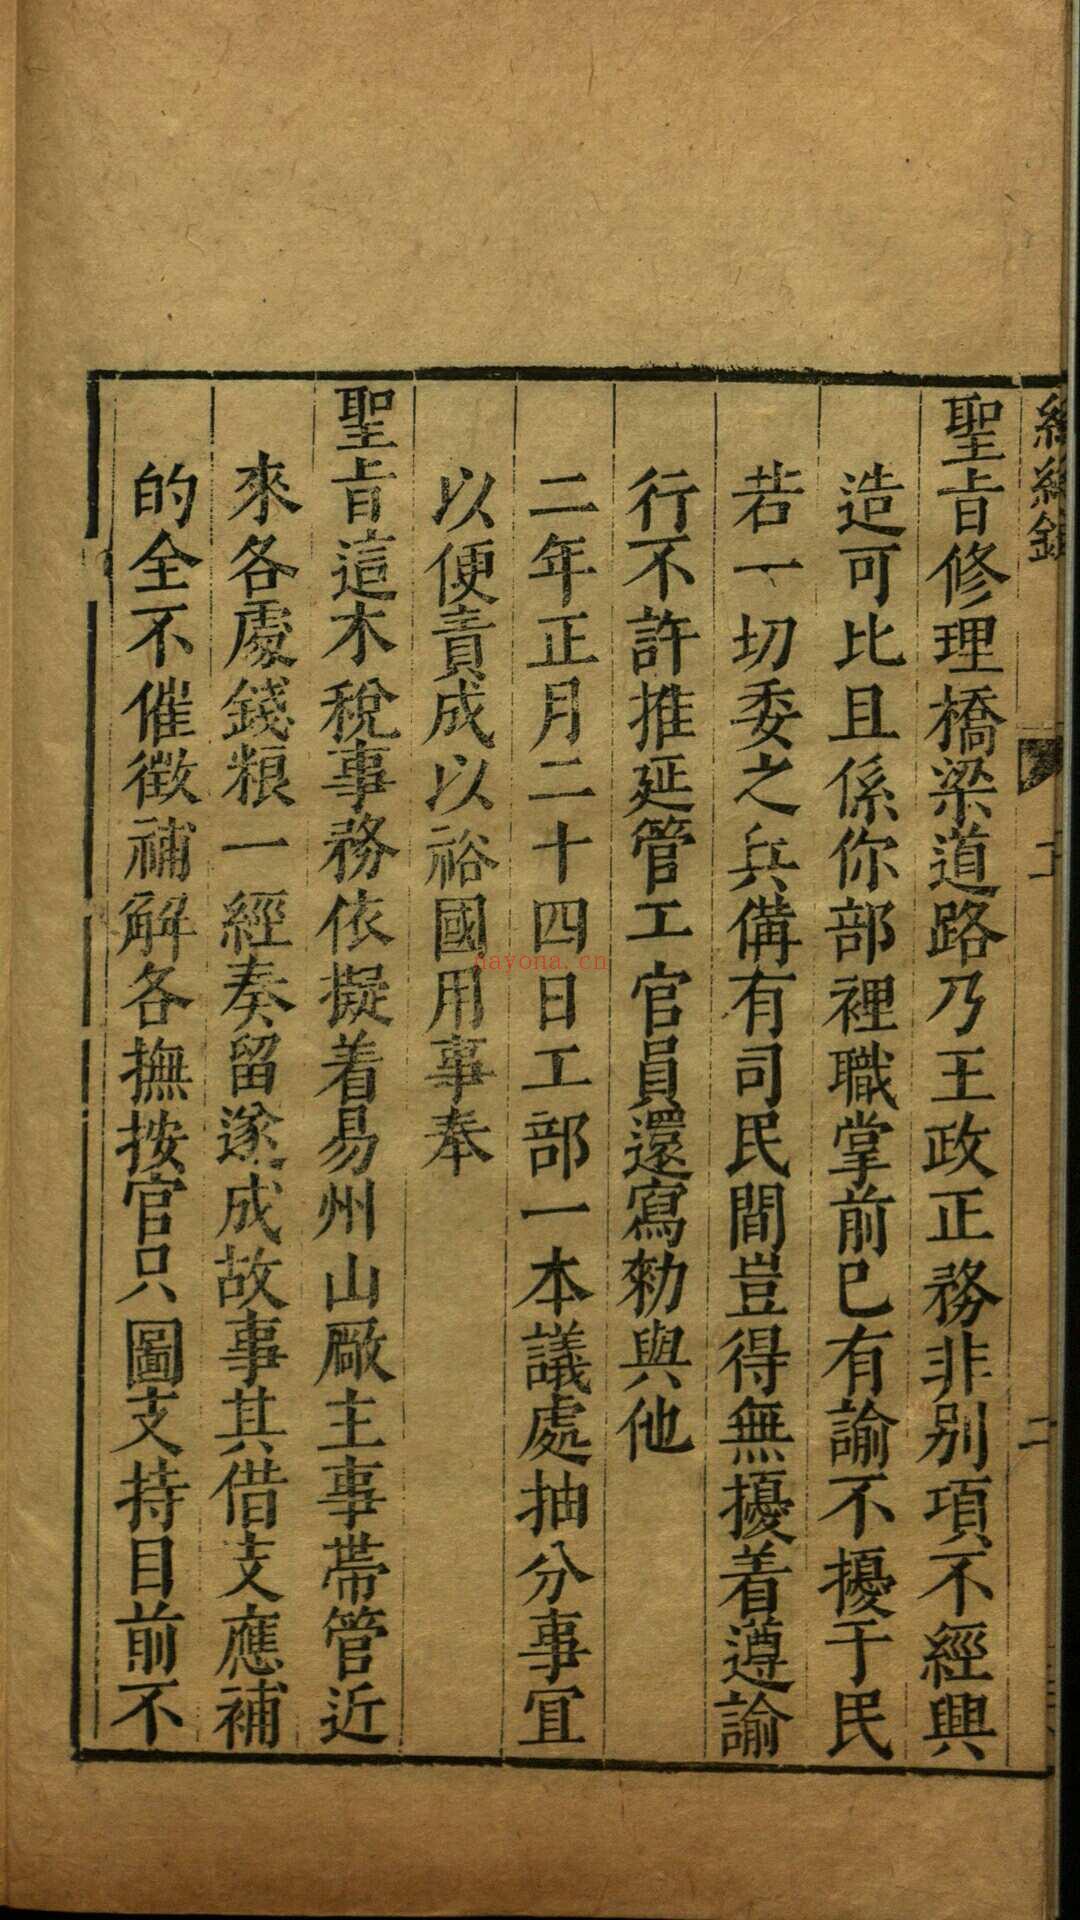 聖旨修理橋梁道路乃王政正務非别項不經興
造可比且係你部裡職掌前已有諭不擾于民
若一切委之兵備有司民間豈得無擾着遵諭
行不許推延管工官員還寫勑與他
二年正月二十四日工部一本議處抽分事宜
以便責成以裕國用事奉
聖旨這木稅事務依擬着易州山厰主事帶管近
來各處錢粮一經奏留遂成故事其借支應補
的全不催徵補解各撫按官只圖支持目前不
nayona.cn